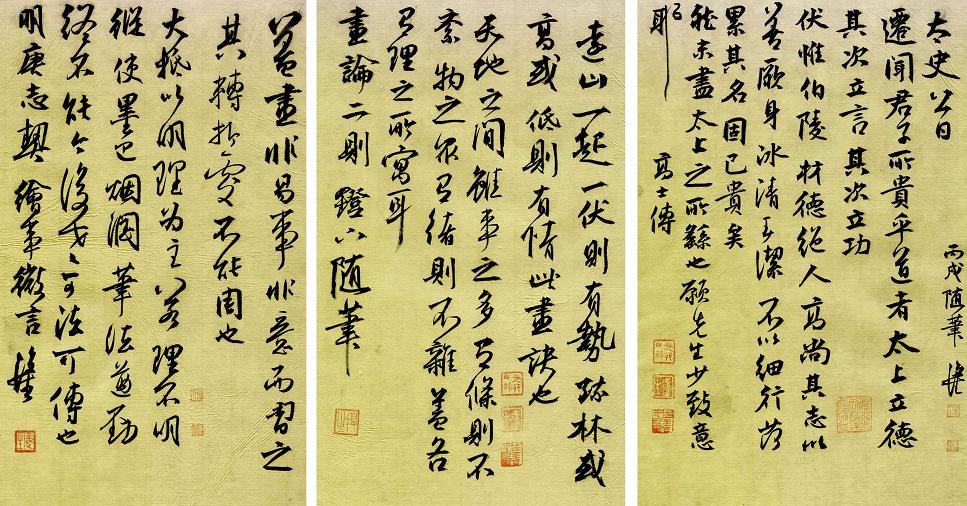 太史公曰
遷聞君子所貴乎道者太上立德
其次立言其次立功
伏惟伯陵材德絕人高尚其志以
善厥身冰清玉潔不以細行荷
累其名固已貴矣
然未盡太上之所繇也願先生少致意
耶
高士傳
丙戌隨筆
遠山一起一伏則有勢疏林或
高或低則有情此畫訣也
天地之間雖事之多有條則不
紊物之眾有緒則不雜蓋各
有理之所寓耳
畫論二則 鐙下隨筆
蓋畫非易事非意而習之
其轉折處不能周也
大抵以明理為主若理不明
縱使墨色烟潤筆法遒勁
終不能令後世可法可傳也
明唐志契繪事微言